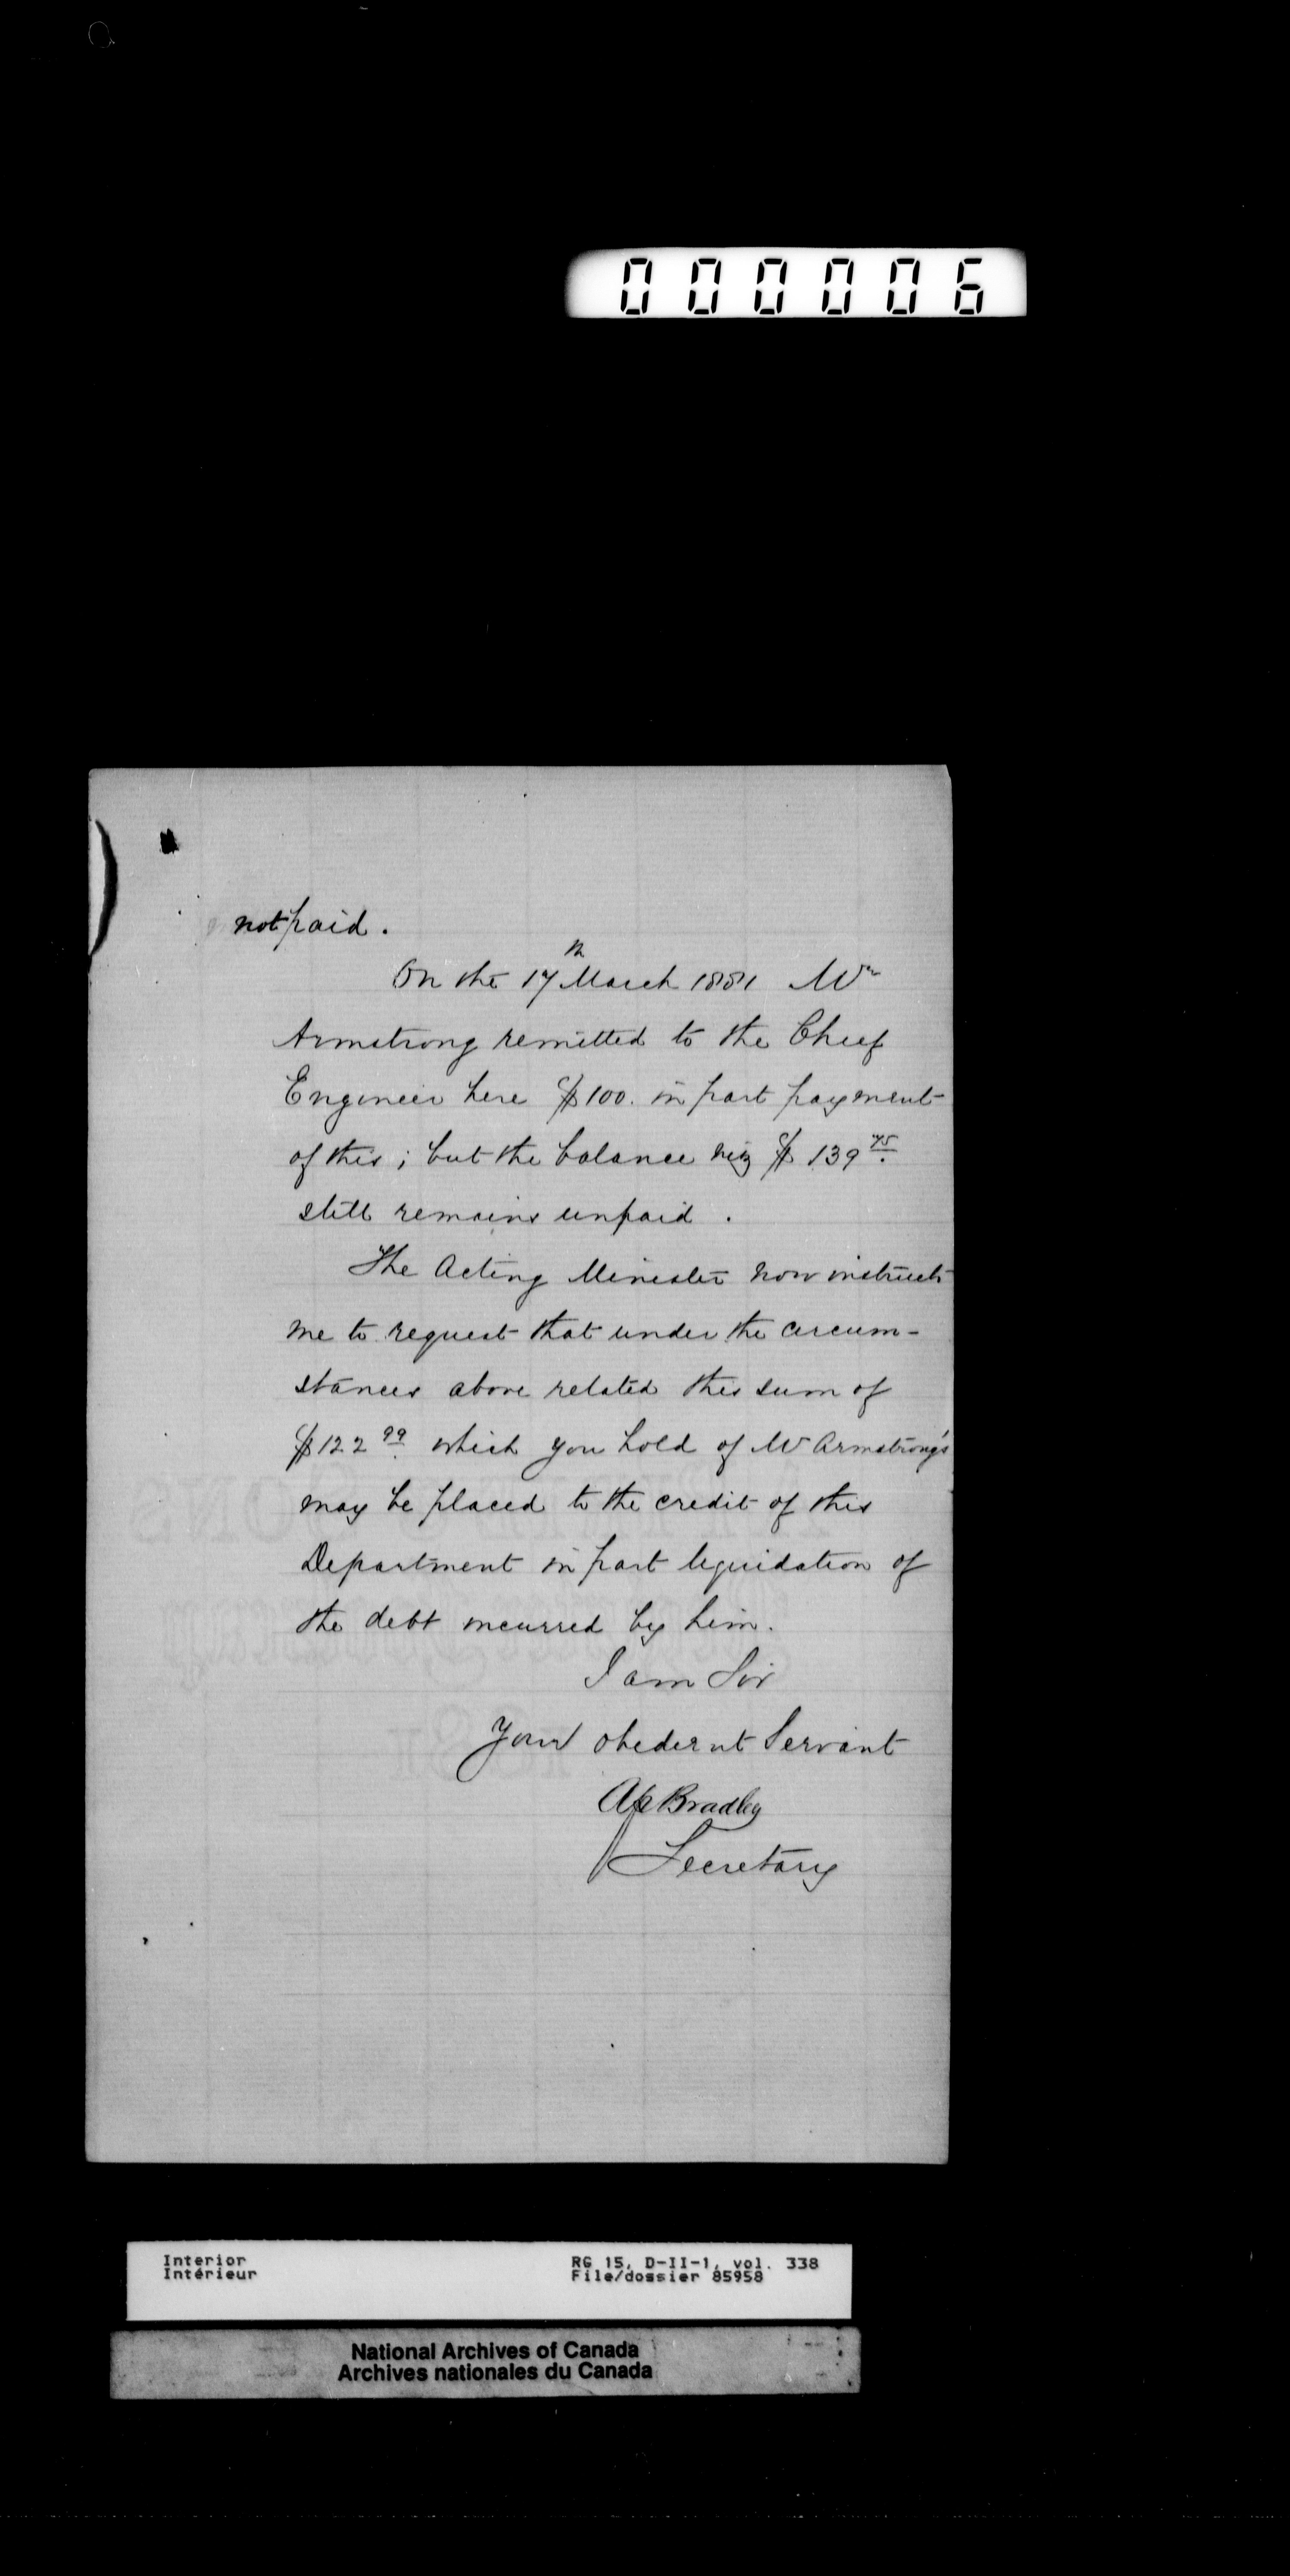 000006
not paid.
On the 17th March 1881 Mr
Armstrong remitted to the Chief
Engineer here $100. in part payment
of this; but the balance viz $139.75
still remains unpaid.
The Acting Minister now instructs
me to request that under the circum-
stances above related this sum of
$122.99 which you hold of Mr Armstrong's
may be placed to the credit of this
Department in part liquidation of
the debt incurred by him.
I am Sir
Your obedient Servant
AP Bradley
Secretary
Interior RG 15, D-II-1, vol. 338
Intérieur File/dossier 85958
National Archives of Canada
Archives nationales du Canada